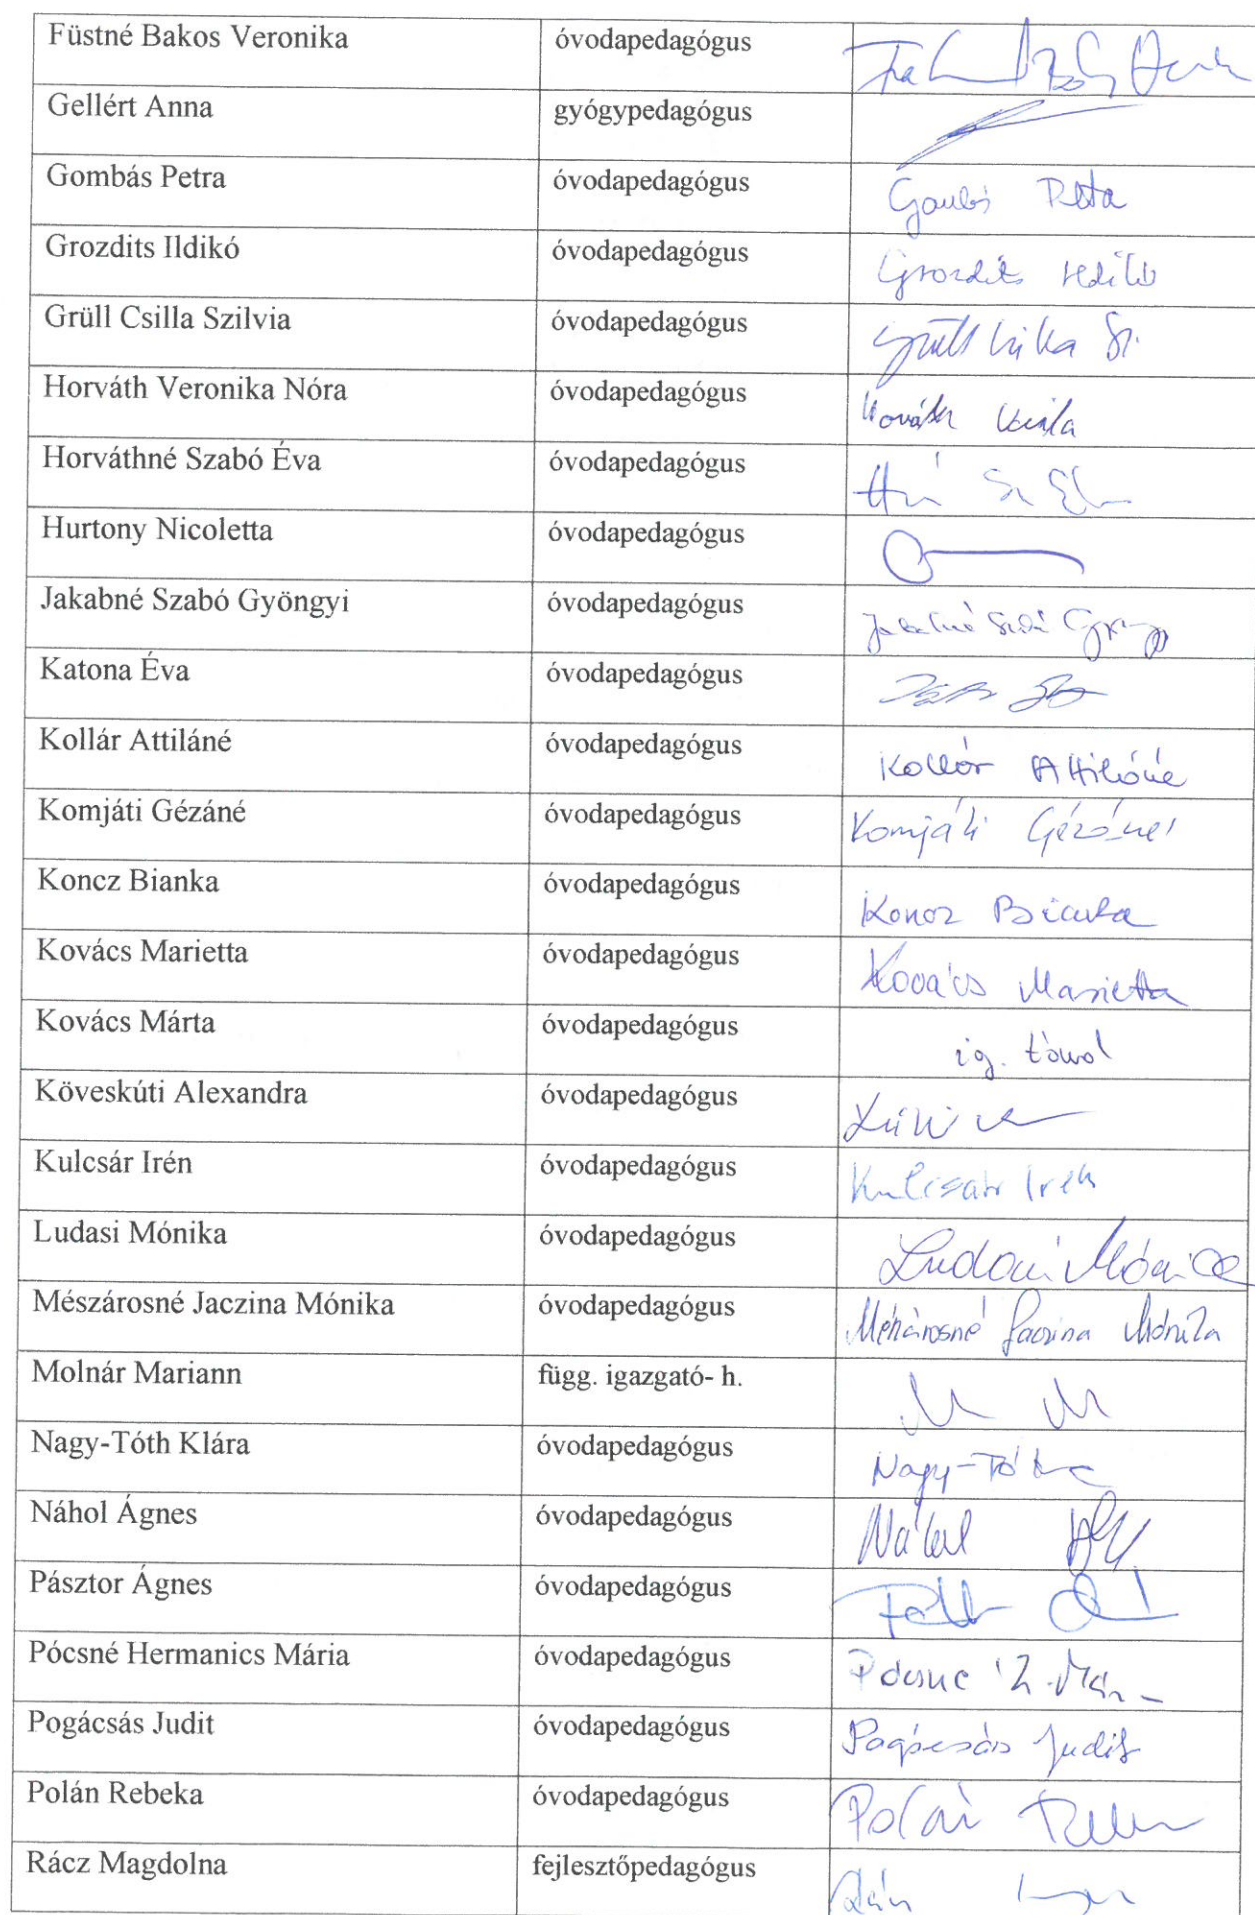 Füstné Bakos Veronika óvodapedagógus
Gellért Anna gyógypedagógus
Gombás Petra óvodapedagógus Gombás Petra
Grozdits Ildikó óvodapedagógus Grozdits Ildikó
Grüll Csilla Szilvia óvodapedagógus Grüll Csilla Sz.
Horváth Veronika Nóra óvodapedagógus Horváth
Horváthné Szabó Éva óvodapedagógus
Hurtony Nicoletta óvodapedagógus
Jakabné Szabó Gyöngyi óvodapedagógus Jakabné Szabó Gyöngyi
Katona Éva óvodapedagógus
Kollár Attiláné óvodapedagógus Kollár Attiláné
Komjáti Gézáné óvodapedagógus Komjáti Gézáné
Koncz Bianka óvodapedagógus Koncz Bianka
Kovács Marietta óvodapedagógus Kovács Marietta
Kovács Márta óvodapedagógus ig. távol
Köveskúti Alexandra óvodapedagógus
Kulcsár Irén óvodapedagógus Kulcsár Irén
Ludasi Mónika óvodapedagógus Ludasi Mónika
Mészárosné Jaczina Mónika óvodapedagógus Mészárosné Jaczina Mónika
Molnár Mariann függ. igazgató- h.
Nagy-Tóth Klára óvodapedagógus Nagy-Tóth
Náhol Ágnes óvodapedagógus Náhol
Pásztor Ágnes óvodapedagógus
Pócsné Hermanics Mária óvodapedagógus Pócsné
Pogácsás Judit óvodapedagógus Pogácsás Judit
Polán Rebeka óvodapedagógus Polán
Rácz Magdolna fejlesztőpedagógus